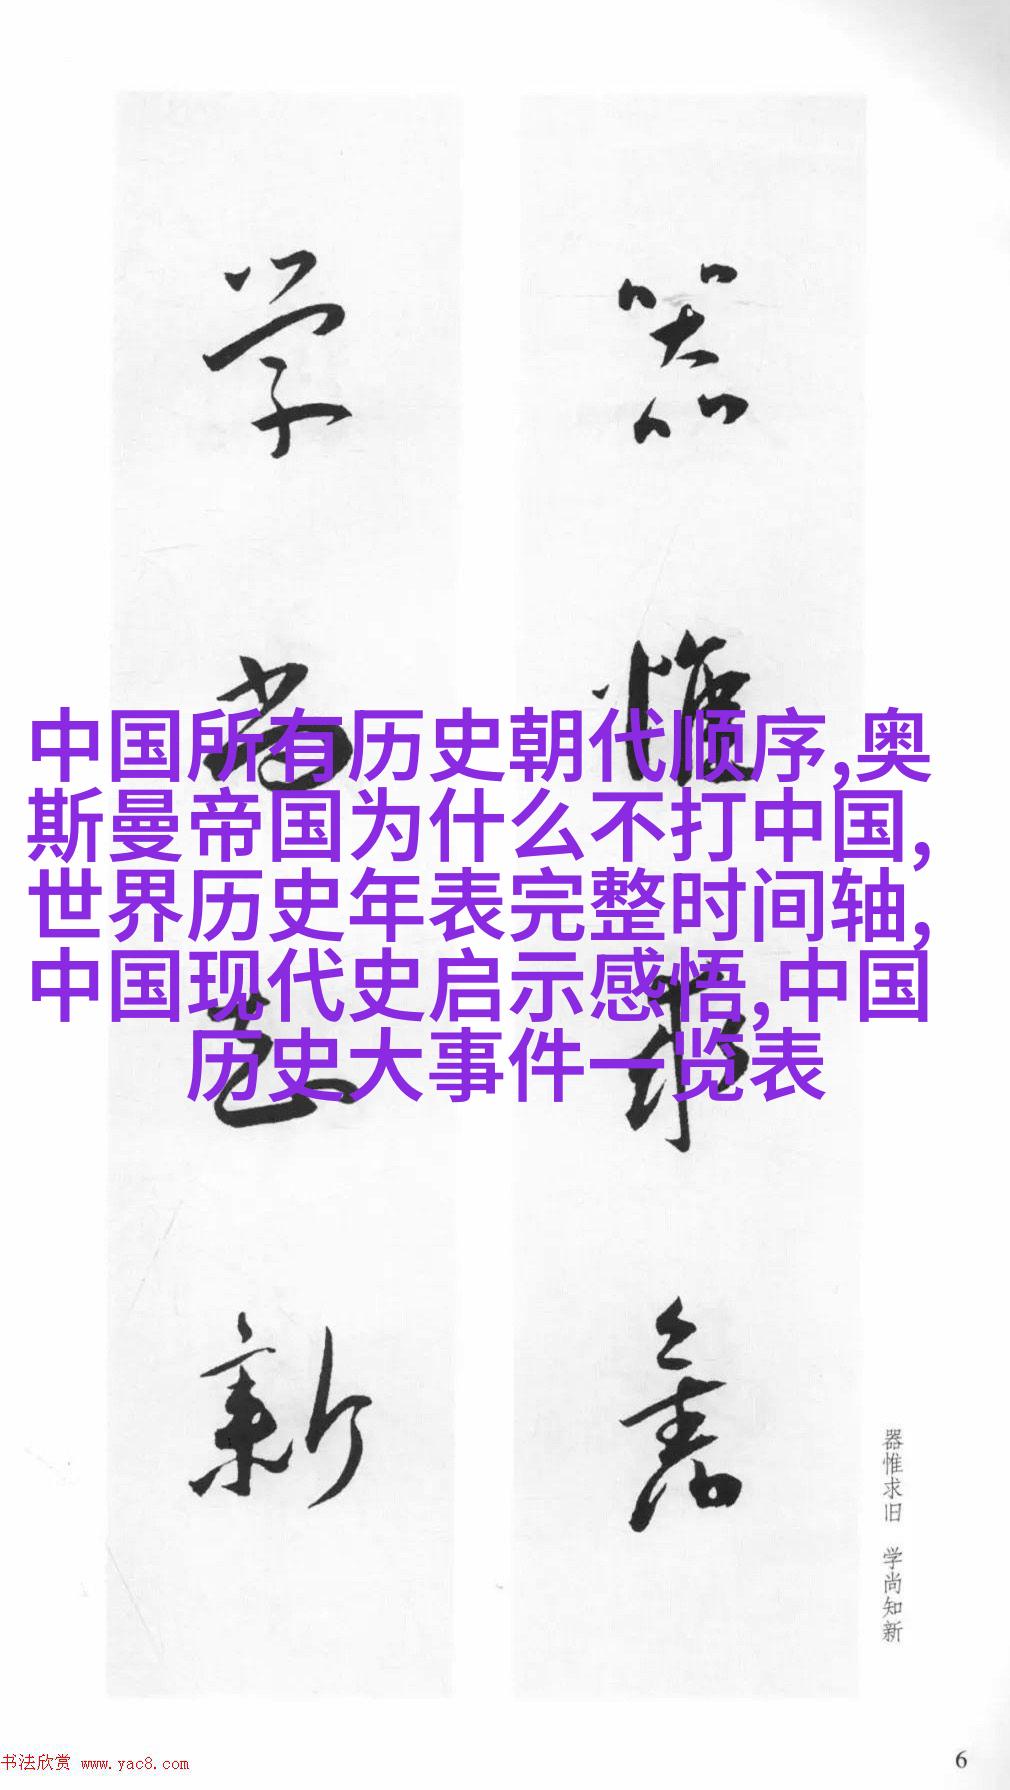 器惟求舊
学尚知新
中国所有历史朝代顺序,奥
斯曼帝国为什么不打中国,
世界历史年表完整时间轴,
中国现代史启示感悟,中国
历史大事件一览表
器惟求旧 学尚知新
书法欣赏 www.yac8.com
6